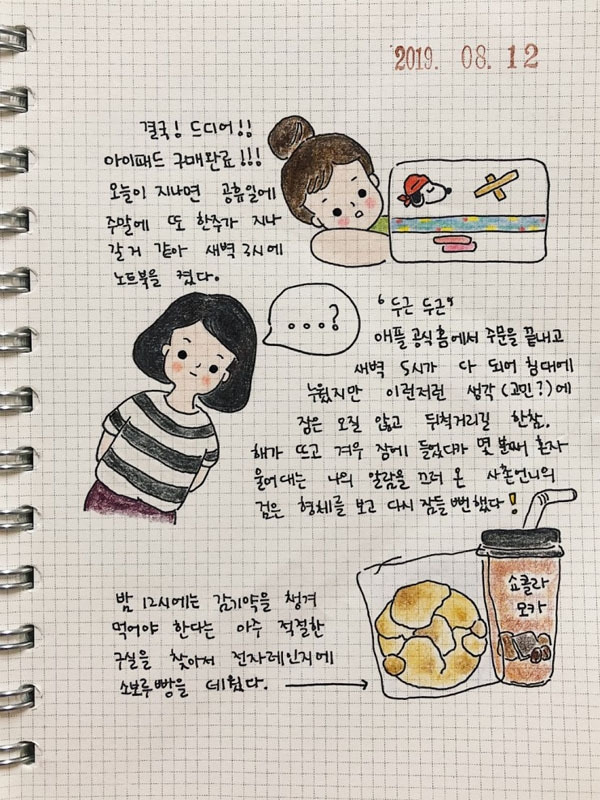 2019. 08. 12
결국! 드디어!!
아이패드 구매완료!!!
오늘이 지나면 공휴일에
주말에 또 한주가 지나
갈 거 같아 새벽 3시에
노트북을 켰다.
...?
"두근 두근"
애플 공식홈에서 주문을 끝내고
새벽 5시가 다 되어 침대에
누웠지만 이런저런 생각(고민?)에
잠은 오질 않고 뒤척거리길 한참.
해가 뜨고 겨우 잠에 들었다가 몇 분째 혼자
울어대는 나의 알람을 끄러 온 사촌언니의
검은 형체를 보고 다시 잠들 뻔 했다!
밤 12시에는 감기약을 챙겨
먹어야 한다는 아주 적절한
구실을 찾아서 전자레인지에
소보루빵을 데웠다.
쇼콜라
모카